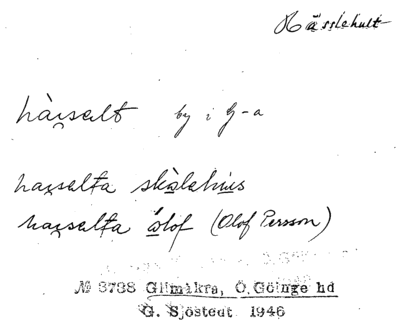 Hässlehult
hàssalt by i G-a
hassalta skòlehus
hassalta òlof (Olof Persson)
№ 3788 Glimåkra, Ö.Göinge hd
G. Sjöstedt 1946